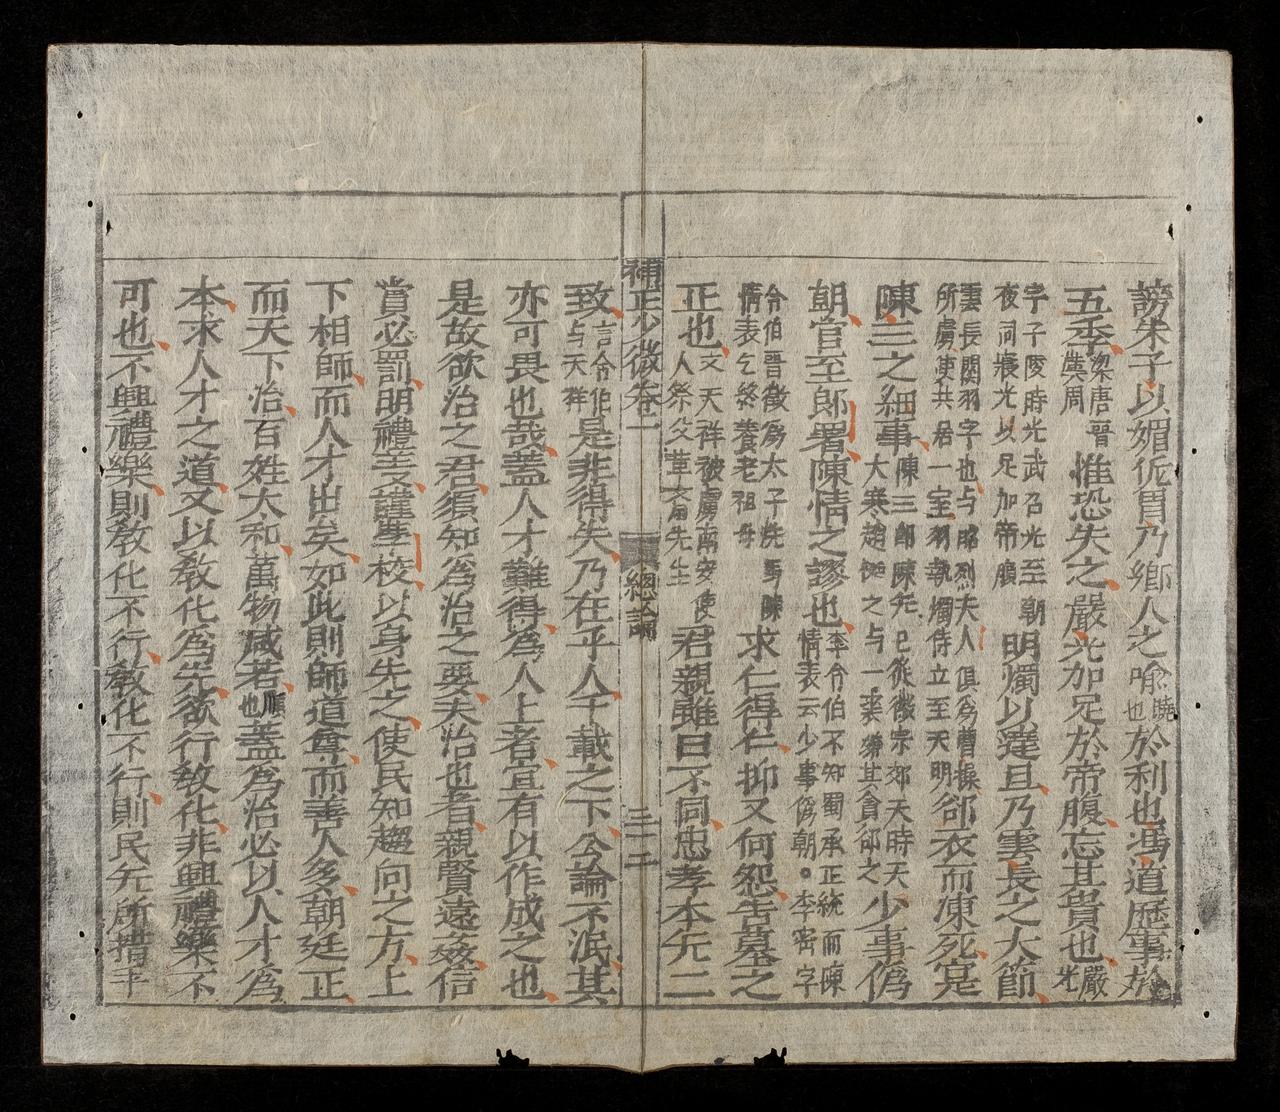 謗朱子以媚侂胄乃鄉人之喻曉也於利也馮道歷事於
五季梁唐晉漢周惟恐失之嚴光加足於帝腹忘其貴也嚴光
字子陵時光武召光至朝夜同寢光以足加帝腹明燭以達旦乃雲長之大節
雲長關羽字也与昭烈夫人俱爲曹操所虜使共居一室羽執燭侍立至天明郤衣而凍死寔
陳三之細事陳三卽陳旡己從徽宗郊天時天大寒趙挺之与一裘嫌其貪郤之少事僞
朝官至郎署陳情之謬也李令伯不知蜀承正統而陳情表云少事僞朝。李密字
令伯晉徵爲太子洗馬陳情表乞終養老祖母求仁得仁抑又何怨告墓之
正也文天祥被虜南安使人祭父革齋先生君親雖曰不同忠孝本旡二
補正少微卷一 總論
致言令伯与天祥是非得失乃在乎人千載之下公論不泯其
亦可畏也哉蓋人才難得爲人上者宜有以作成之也
是故欲治之君須知爲治之要夫治也者親賢遠姦信
賞必罰明禮義謹學校以身先之使民知趨向之方上
下相師而人才出矣如此則師道尊而善人多朝廷正
而天下治百姓太和萬物咸若順也蓋爲治必以人才爲
本求人才之道又以敎化爲先欲行敎化非興禮樂不
可也不興禮樂則敎化不行敎化不行則民旡所措手